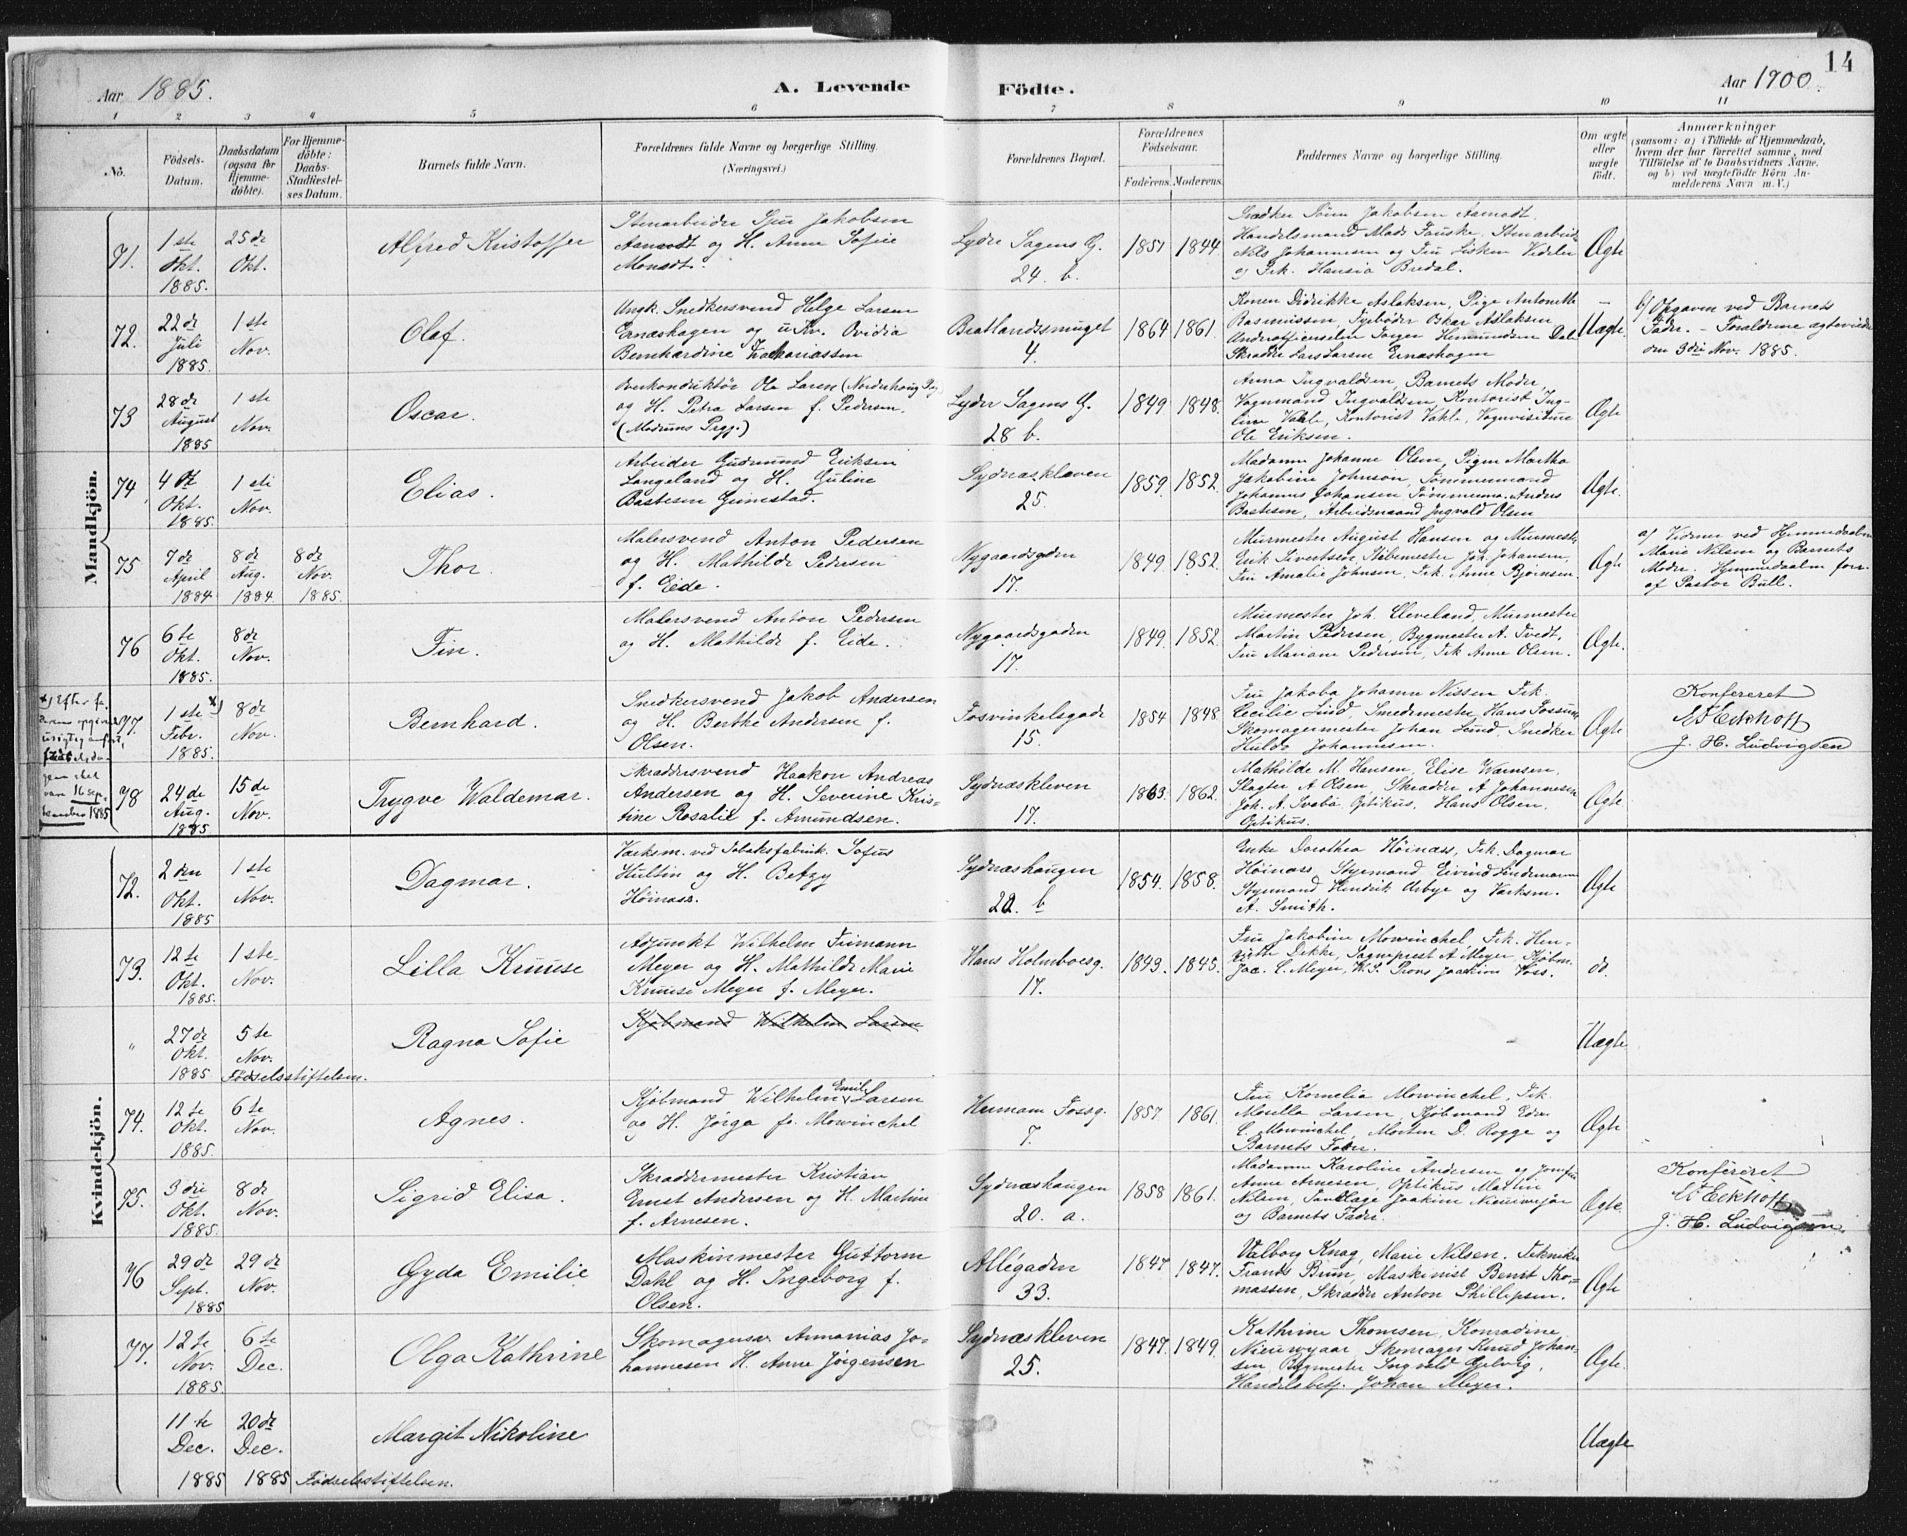 Aar 1885.
A. Levende Födte.
Aar 1900.
14
1 2 3 4 5 6 7 8 9 10 11
No.
Födsels-Datum.
Daabsdatum (ogsaa for Hjemmedöbte).
For Hjemmedöbte: Daabs-Stadfæstelses Datum.
Barnets fulde Navn.
Forældrenes fulde Navne og borgerlige Stilling. (Næringsvei.)
Forældrenes Bopæl.
Forældrenes Födselsaar. Faderens. Moderens.
Faddernes Navne og borgerlige Stilling.
Om ægte eller uægte födt.
Anmærkninger
(saasom: a) i Tilfælde af Hjemmedaab, hvem der har forrettet samme, med Tilföielse af to Daabsvidners Navne, og b) ved uægtefödte Börn Anmelderens Navn m. V.)
Mandkjön.
71. 1ste Okt. 1885. 25de Okt. Alfred Kristoffer
Stenarbeider Sjur Jakobsen
og H. Anne Sofie
Lyder Sagens G. 24 b. 1851 1844
Jakobsen Aamodt.
Handelsmand Mads Fauske, Stenarbeid.
Nils Johannesen og Fru Lisken
og Frk. Hansia Bredal.
Ægte
72. 22de Juli 1885. 1ste Nov. Olaf.
Ungk. Snedkersvend Helge Larsen
Ernæshagen og u.Kv. Ovidia
Bernhardine Zakariassen
4. 1864 1861.
Konen Didrikke Aslaksen, Pige Antonette
Rasmussen, Oskar Aslaksen
Skrædder Lars Larsen Ernæshagen
Uægte.
b) Opgaven ved Barnets
Fader. - Forældrene ægteviede
den 3die Nov. 1885.
73 28de August 1885 1ste Nov. Oscar.
Overkonduktör Ole Larsen (Norderhoug Prgj.)
og H. Petra Larsen f. Pedersen.
(Modums Prgj.)
Lyder Sagens G. 28 b. 1849 1848.
Anna Ingvaldsen, Barnets Moder,
Vognmand Ingvaldsen, Kontorist
Kontorist Vakle, Vognvisiteur
Ole Eriksen.
Ægte
74 4de Okt. 1885. 1ste Nov. Elias.
Arbeider Gudmund Eriksen
Langeland og H. Guline
Bastesen Gjimestad.
Sydnæskleven 25. 1859. 1852.
Madame Johanne Olsen, Pigen Martha
Jakobine Johnson, Tømmermand
Johannes Johansen Tømmerma. Anders
Bastesen, Arbeidsmand Ingvald Olsen
Ægte.
75 7de April 1884 8de Aug. 1884. 8de Nov. 1885. Thor.
Malersvend Anton Pedersen
og H. Mathilde Pedersen
f. Eide.
Nygaardsgaden 17. 1849. 1852.
Murmester August Hansen og Murmest.
Erik Sivertsen, Kjøbmester Joh. Johansen,
Fru Amalie Johnsen, Frk. Anne Bjørnsen.
Ægte
a) Vidner ved Hjemmedaaben
Marie Nilsen og Barnets
Moder. Hjemmedaaben forr.
af Pastor Bull.
76 6te Okt. 1885. 8de Nov. Fin.
Malersvend Anton Pedersen
og H. Mathilde f. Eide.
Nygaardsgaden 17. 1849. 1852.
Murmester Joh. Cleveland, Murmester
Martin Pedersen, Bygmester A. Tvedt,
Fru Mariane Pedersen, Frk Anne Olsen.
Ægte.
x) Efter fa-
derens opgivende
urigtig anført,
fødselsda-
gen skal
være 16 sep-
tember 1885
77. 1ste x) Febr. 1885. 8de Nov. Bernhard.
Snedkersvend Jakob Andersen
og H. Berthe Andersen f.
Olsen.
Fosvinkelsgade 15. 1854 1848.
Fru Jakoba Johanne Nissen Frk.
Cecilie Lund, Smedemester Hans Fossum
Skomagermester Johan Lund, Snedker
Johannesen.
Ægte
Konfereret
E Eckhoff
J. H. Ludvigsen
78 24de Aug. 1885 15de Nov. Trygve Waldemar.
Skræddersvend Haakon Andreas
Andersen og H. Severine Kris-
tine Rosalie f. Amundsen.
Sydnæskleven 17. 1863. 1862.
Mathilde M. Hansen, Elise Warnsen,
Slagter A Olsen, Skrædder A Johannesen
Joh. A. Svabö, Optikus, Hans Olsen,
Optikus.
Ægte
Kvindekjön.
72. 2den Okt. 1885 1ste Nov. Dagmar.
Værksm. ved Tobaksfabrik. Sofus
Hultin og H. Betzy
Höinæss.
Sydnæshaugen 20. b 1854. 1858.
Enke Dorothea Höinæss, Frk. Dagmar
Höinæss, Styrmand Eivind Lindemann
Styrmand Hendrik Arbye og Værksm.
A. Smith.
Ægte
73. 12te Okt. 1885. 1ste Nov. Lilla Kruuse
Adjunkt Wilhelm Frimann
Meyer og H. Mathilde Marie
Kruuse Meyer f. Meyer.
Hans Holmboesg. 17. 1843. 1845.
Fru Jakobine Mowinckel, Frk. Hen-
Dekke, Sogneprest A Meyer, Kjøbm.
Jac. C. Meyer, Joakim Voss.
do.
" 27de Okt. 1885 5te Nov. Födselsstiftelsen. Ragna Sofie
Kjøbmand Wilhelm Larsen
Uægte
74. 12te Okt. 1885. 6te Nov. Agnes.
Kjøbmand Wilhelm Emil Larsen
og H. Jörga f. Mowinckel
Hermann Fossg. 7. 1857 1861.
Fru Kornelia Mowinckel, Frk.
Mosella Larsen, Kjøbmand Edv.
C. Mowinckel, Morten D. Rogge og
Barnets Fader.
Ægte
75. 3die Okt. 1885. 8de Nov. Sigrid Elisa.
Skræddermester Kristian
Ernst Andersen og H. Martine
f. Arnesen.
Sydnæshaugen 20. a. 1858 1861.
Madame Karoline Andersen og Jomfru
Anne Arnesen, Optikus Martin
Nilsen, Joakim Nieuwejar
og Barnets Fader.
Ægte.
Konfereret
E Eckhoff
J. H. Ludvigsen
76 29de Sept. 1885 29de Nov. Gyda Emilie
Maskinmester Guttorm
Dahl og H. Ingeborg f.
Olsen.
Allégaden 33. 1847 1847.
Valborg Knag, Marie Nilsen. Tekniker
Frants Bruun, Maskinist Bernt Tho-
massen, Skrædder Anton Phillipsen.
Ægte
77. 12te Nov. 1885. 6te Dec. Olga Kathrine
Skomagersv. Annanias Jo-
hannesen H. Anne Jörgensen
Sydnæskleven 25. 1847. 1849.
Kathrine Thomsen, Konradine
Nieuwejaar, Skomager Knud Johan-
sen, Bygmester Ingvald Gjelvig,
Handelsbetj. Johan Meyer.
Ægte.
11te Dec. 1885 20de Dec. 1885 Födselsstiftelsen. Margit Nikoline
Uægte